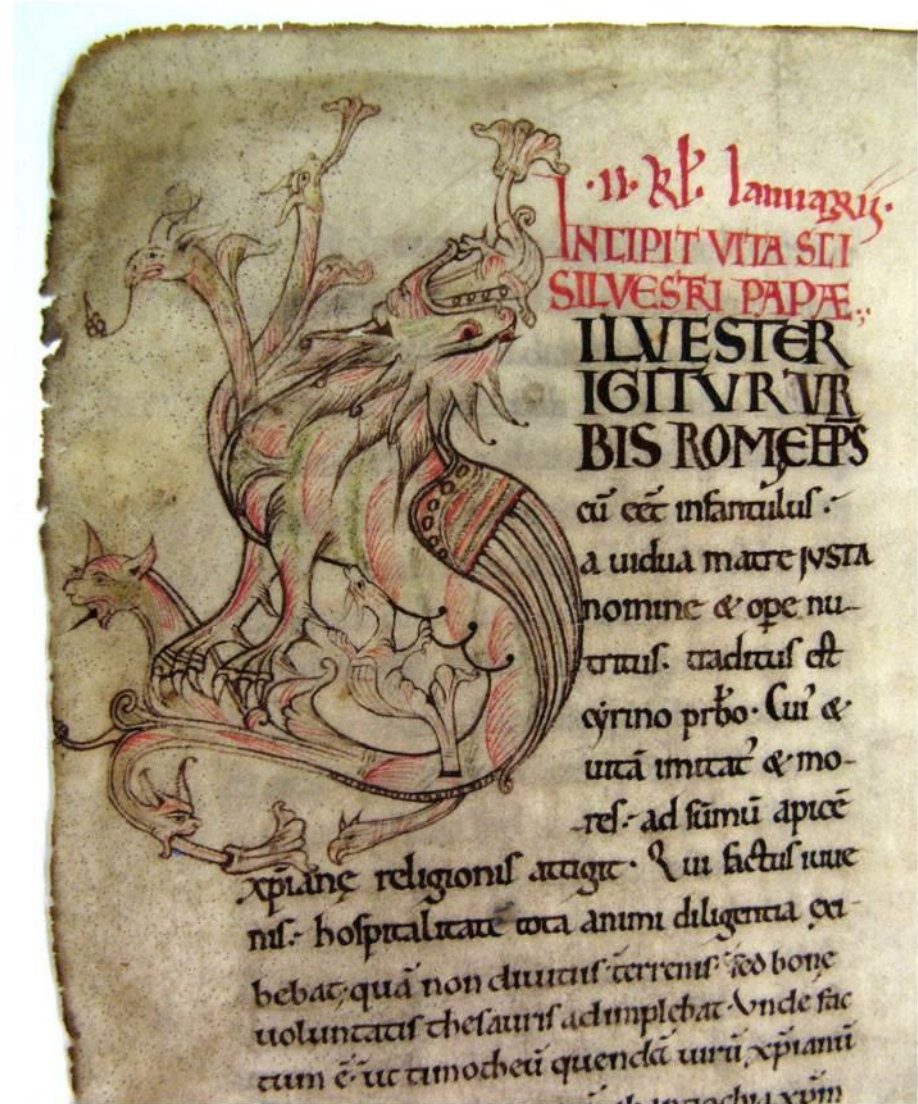 .II. kł. Ianuarij.
INCIPIT VITA SCI
SILVESTRI PAPÆ.,
ILVESTER
IGITVR VR
BIS ROMĘ EP̄S
cū eēt infantulus.
a uidua matre IVSTA
nomine & ope nu-
tritus. traditus est
cyrino prb̄o. Cui' &
uitā imitat' & mo-
res. ad sūmū apicē
xp̄ianę religionis attigit. Qui factus iuue
nis. hospitalitatē tota animi diligentia exi-
bebat, quā non diuitiis terrenis sed bonę
uoluntatis thesauris adimplebat. Vnde fac
tum ē. ut timotheū quendā uirū xp̄ianū
antiochia xp̄m